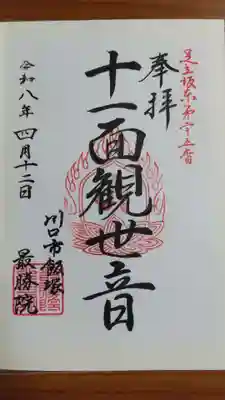 足立坂東第廿五番
奉拝
十一面観世音
川口市飯塚
最勝院
令和八年四月十二日